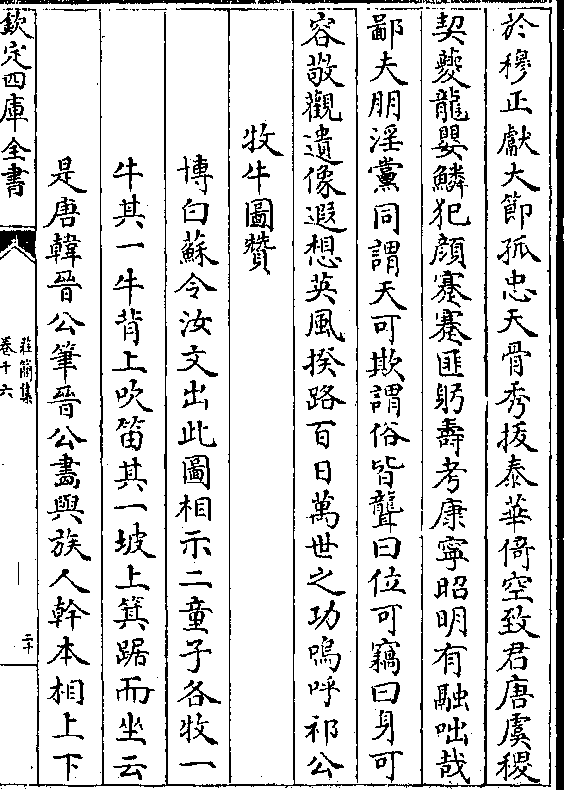 於穆正獻大節孤忠天骨秀拔泰華倚空致君唐虞稷
契夔龍嬰鱗犯顔蹇蹇匪躬壽考康寧昭明有融咄哉
鄙夫朋淫黨同謂天可欺謂俗皆聾曰位可竊曰身可
容敬觀遺像遐想英風揆路百日萬世之功嗚呼祁公
牧牛圖贊
博白蘇令汝文出此圖相示二童子各牧一
牛其一牛背上吹笛其一坡上箕踞而坐云
是唐韓晉公筆晉公畵與族人幹本相上下
欽定四庫全書
莊簡集
卷十六
二十